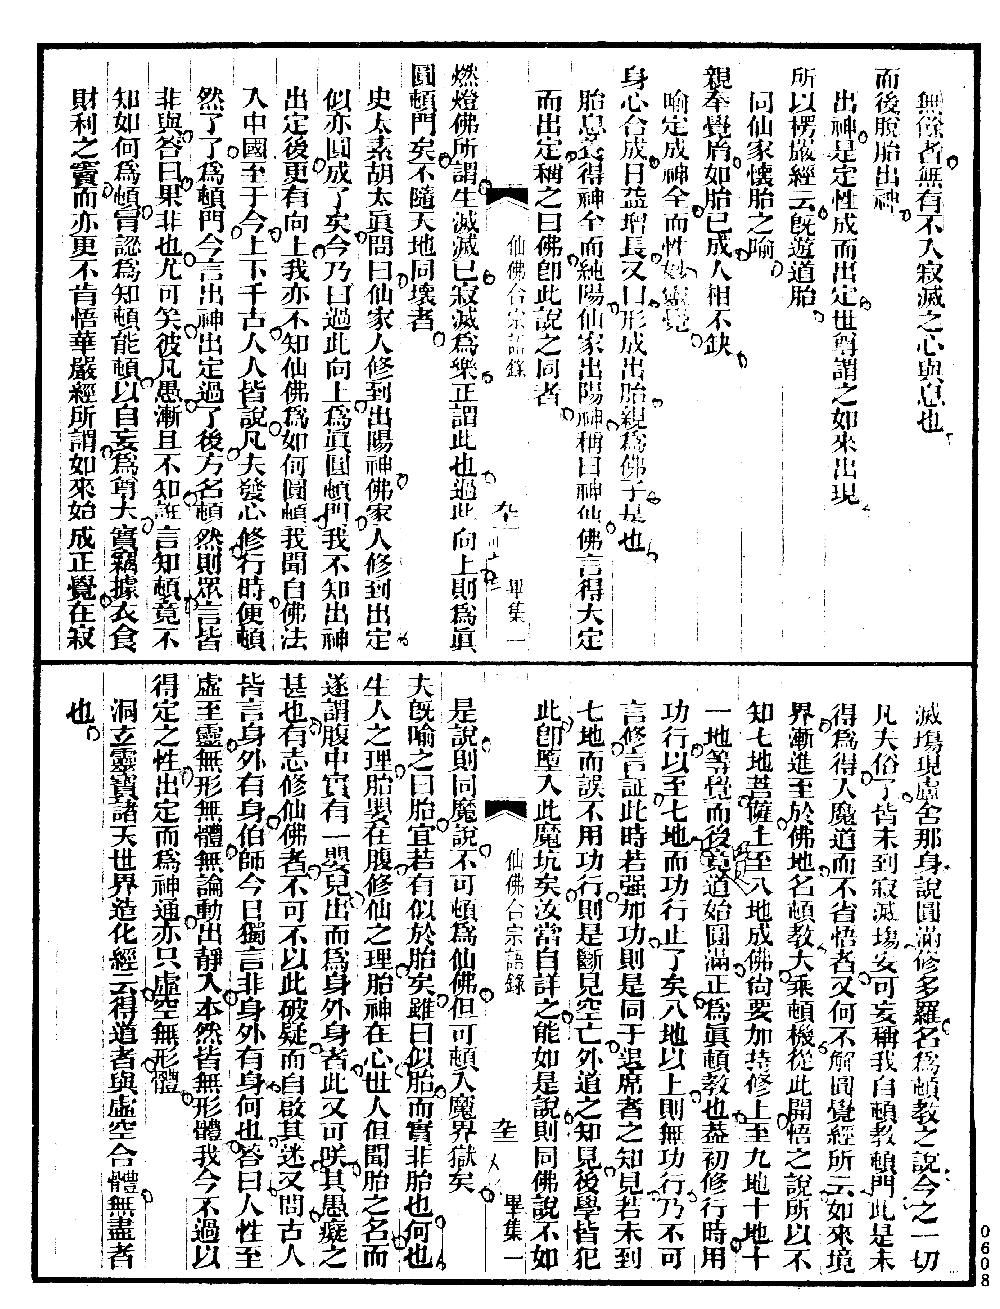 無係者無有不入寂滅之心與息也
而後脫胎出神
出神是定性成而出定世尊謂之如來出現
所以楞嚴經云旣遊道胎
同仙家懷胎之喻
親奉覺胤如胎已成人相不缺
喻定成神全而性妙靈覺
身心合成日益增長又曰形成出胎親爲佛子是也
胎息養得神全而純陽仙家出陽神稱曰神仙佛言得大定
而出定稱之曰佛卽此說之同者
仙佛合宗語錄
畢集一
燃燈佛所謂生滅滅已寂滅爲樂正謂此也過此向上則爲眞
圓頓門矣不隨天地同壞者
史太素胡太眞問曰仙家人修到出陽神佛家人修到出定
似亦圓成了矣今乃曰過此向上爲眞圓頓門我不知出神
出定後更有向上我亦不知仙佛爲如何圓頓我聞自佛法
入中國至于今上下千古人人皆說凡夫發心修行時便頓
然了了爲頓門今言出神出定過了後方名頓然則眾言皆
非與答曰果非也尤可笑彼凡愚漸且不知誑言知頓竟不
知如何爲頓冒認爲知頓能頓以自妄爲尊大實竊據衣食
財利之竇而亦更不肯悟華嚴經所謂如來始成正覺在寂
滅塲現盧舍那身說圓滿修多羅名爲頓教之說今之一切
凡夫俗子皆未到寂滅塲安可妄稱我自頓教頓門此是未
得爲得人魔道而不省悟者又何不解圓覺經所云如來境
界漸進至於佛地名頓教大乘頓機從此開悟之說所以不
知七地菩薩上至八地成佛尙要加持修上至九地十地十
一地等覺而後竟道始圓滿正爲眞頓教也葢初修行時用
功行以至七地而功行止了矣八地以上則無功行乃不可
言修言証此時若强加功則是同于退席者之知見若未到
七地而誤不用功行則是斷見空亡外道之知見後學皆犯
此卽墮入此魔坑矣汝當自詳之能如是說則同佛說不如
仙佛合宗語錄
畢集一
是說則同魔說不可頓爲仙佛但可頓入魔界獄矣
夫旣喻之曰胎宜若有似於胎矣雖曰似胎而實非胎也何也
生人之理胎嬰在腹修仙之理胎神在心世人但聞胎之名而
遂謂腹中實有一嬰兒出而爲身外身者此又可咲其愚癡之
甚也有志修仙佛者不可不以此破疑而自啟其迷又問古人
皆言身外有身伯師今日獨言非身外有身何也答曰人性至
虛至靈無形無體無論動出靜入本然皆無形體我今不過以
得定之性出定而爲神通亦只虛空無形體
洞玄靈寶諸天世界造化經云得道者與虛空合體無盡者
也
0608